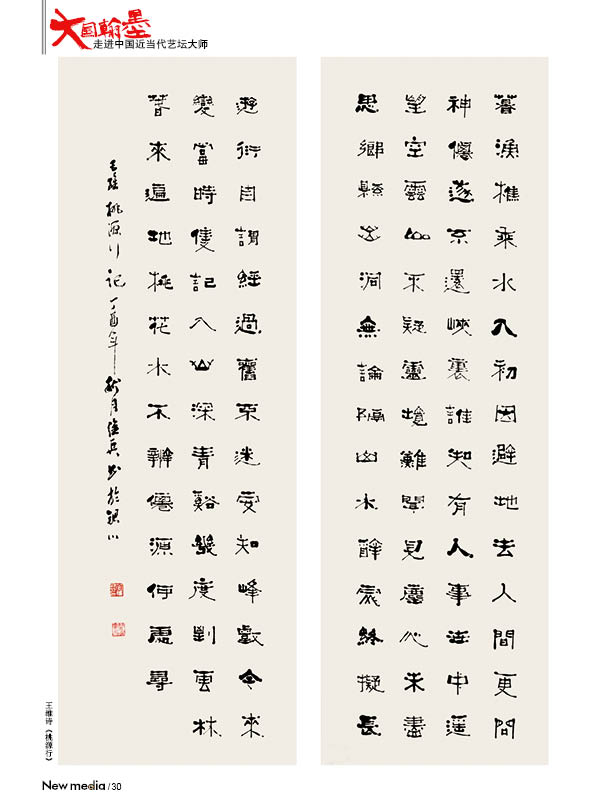 大国翰墨
走进中国近当代艺坛大师
暮漁樵乘水入初因避地去人間更問
神僊遂不還峽裏誰知有人事世中遥
望空雲山不疑靈境難聞見塵心未盡
思鄉縣出洞無論隔山水辭家終擬長
遊衍自謂經過舊不迷安知峰壑今來
變當時隻記入山深青谿幾度到雲林
春來遍地桃花水不辨僊源何處尋
王維桃源行記丁酉年秋月兵书於银川
王维诗《桃源行》
New media / 30